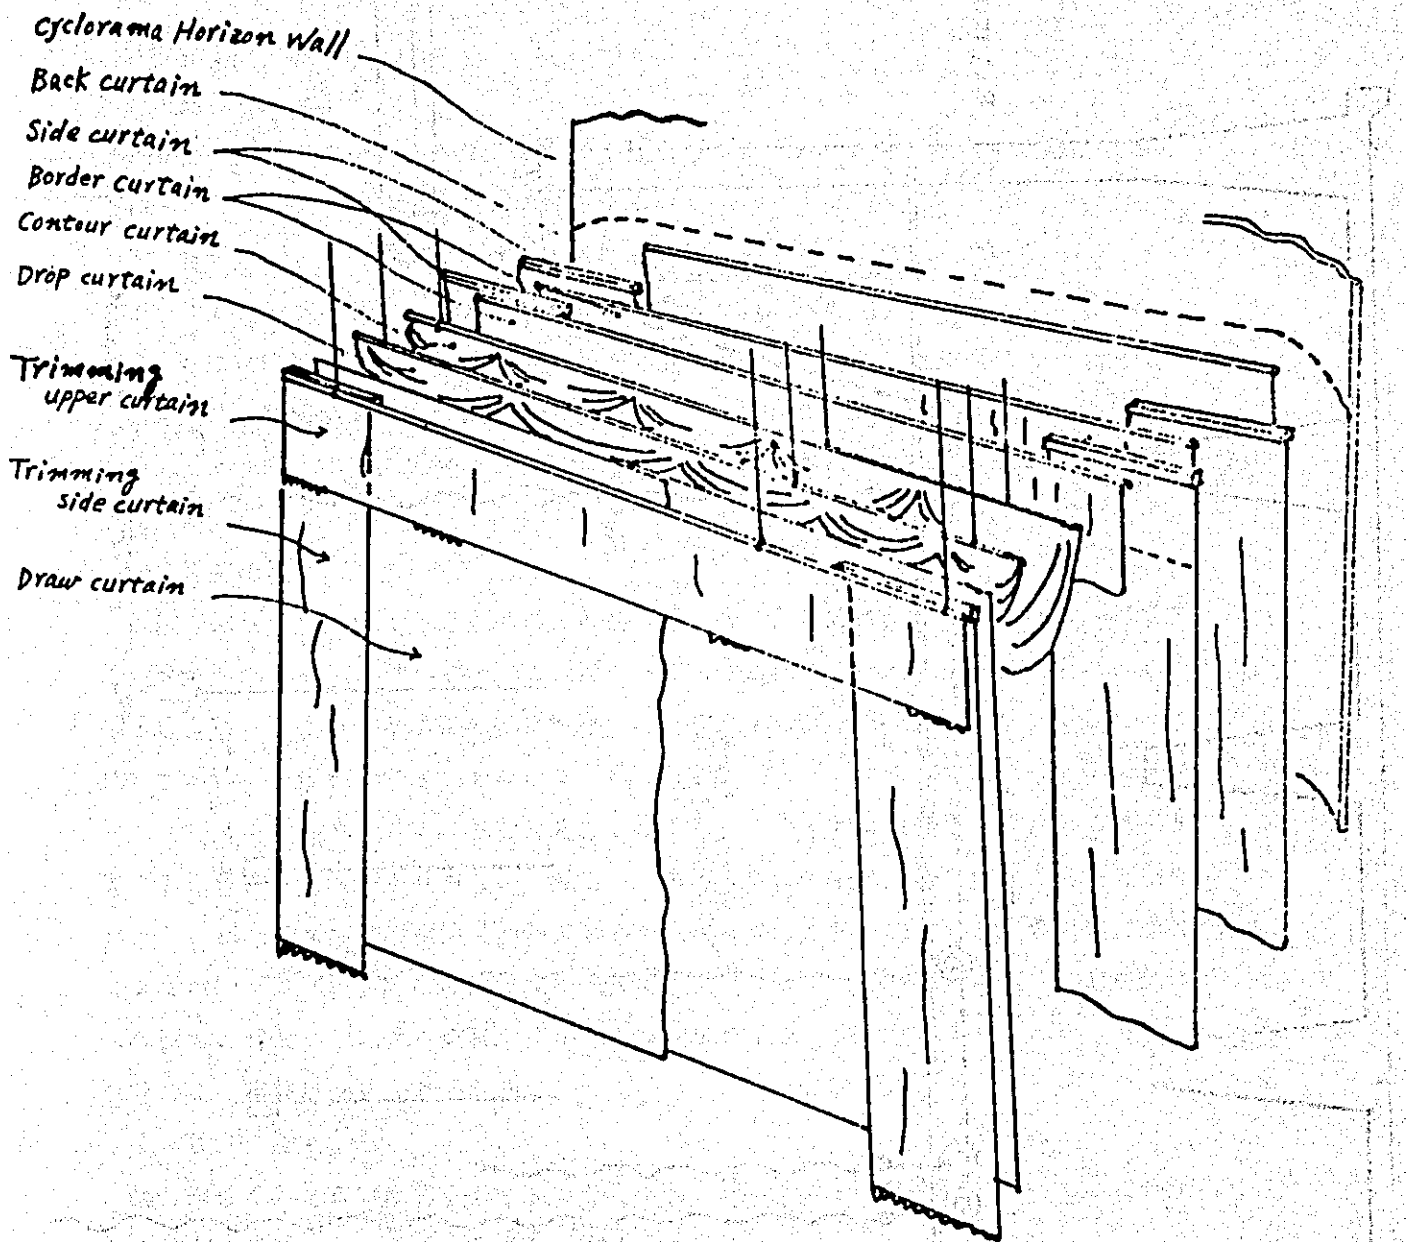 Cyclorama Horizon Wall
Back curtain
Side curtain
Border curtain
Contour curtain
Drop curtain
Trimming
upper curtain
Trimming
side curtain
Draw curtain